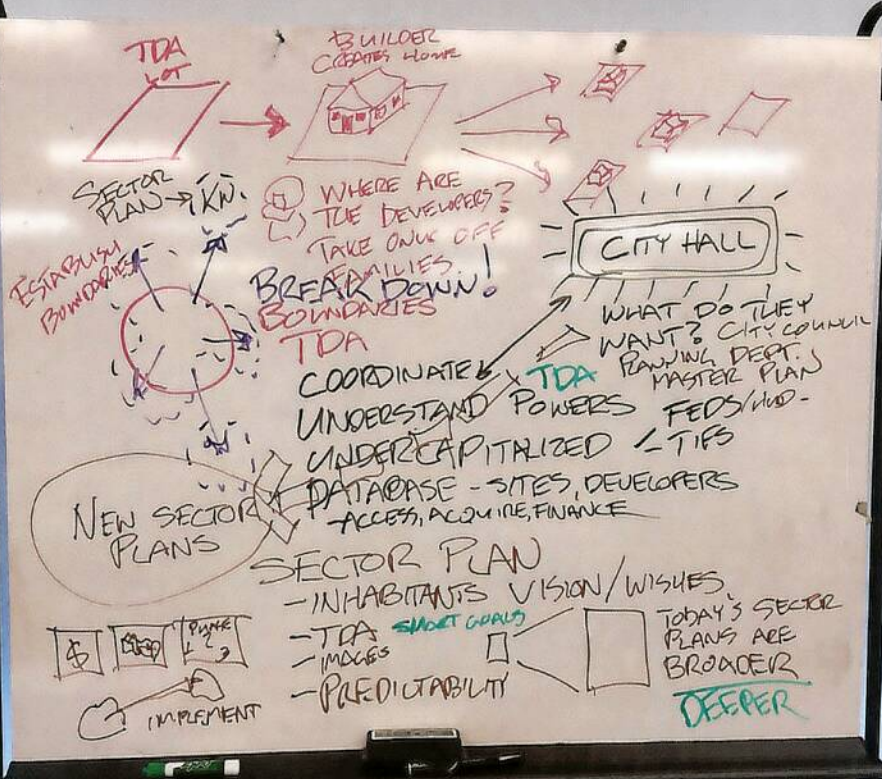 TDA
LOT
BUILDER
CREATES HOME
SECTOR
PLAN → KN.
WHERE ARE
THE DEVELOPERS?
TAKE ONLY OFF
FAMILIES.
ESTABLISH
BOUNDARIES
BREAK DOWN!
BOUNDARIES
TDA
CITY HALL
WHAT DO THEY
WANT? CITY COUNCIL
PLANNING DEPT.
MASTER PLAN
COORDINATE
TDA
UNDERSTAND POWERS
FEDS/HUD-
UNDERCAPITALIZED
-TIFS
DATABASE - SITES, DEVELOPERS
-ACCESS, ACQUIRE, FINANCE
NEW SECTOR
PLANS
SECTOR PLAN
-INHABITANTS VISION/WISHES
-TDA SMART GOALS
-IMAGES
-PREDICTABILITY
TODAY'S SECTOR
PLANS ARE
BROADER
DEEPER
$
PHASE
IMPLEMENT